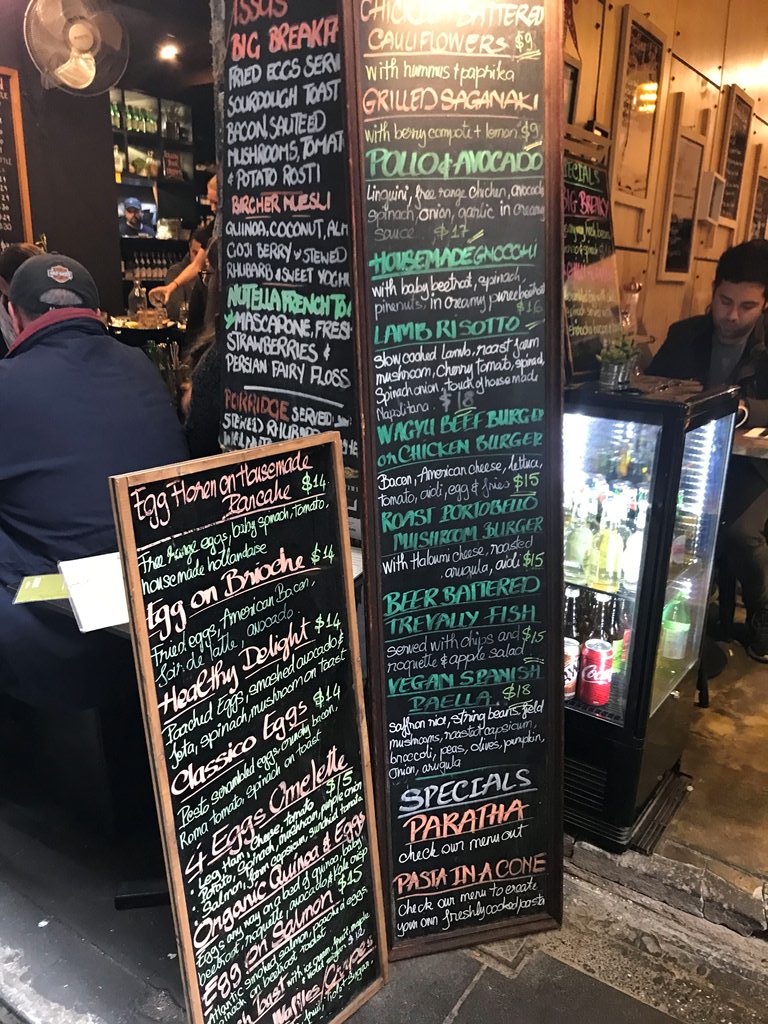 BIG BREAKF
FRIED EGGS SERV
SOURDOUGH TOAST
BACON, SAUTEED
MUSHROOMS, TOMAT
& POTATO ROSTI
BIRCHER MUESLI
QUINOA, COCONUT, ALM
GOJI BERRY & STEWED
RHUBARB & SWEET YOGH
NUTELLA FRENCH TOA
MASCARONE, FRES
STRAWBERRIES &
PERSIAN FAIRY FLOSS
PORRIDGE SERVED
STEWED RHUBARB
CHICKEN BATTERED
CAULIFLOWERS $9
with hummus + paprika
GRILLED SAGANAKI
with berry compote + lemon $9
POLLO & AVOCADO
Linguini, free range chicken, avocado
spinach, onion, garlic in creamy
sauce $17
HOUSEMADE GNOCCHI
with baby beetroot, spinach,
pinenuts, in creamy puree beetroot
$16
LAMB RISOTTO
slow cooked lamb, roast farm
mushroom, Cherry tomato, spinach,
Spanish onion, touch of house made
Napolitana $18
WAGYU BEEF BURGER
or CHICKEN BURGER
Bacon, American cheese, lettuce,
tomato, aioli, egg & fries $15
ROAST PORTOBELLO
MUSHROOM BURGER
with Haloumi cheese, roasted
arugula, aioli $15
BEER BATTERED
TREVALLY FISH
served with chips and $15
roquette & apple salad
VEGAN SPANISH
PAELLA $18
saffron rice, string beans, field
mushrooms, roasted capsicum,
broccoli, peas, olives, pumpkin,
Onion, arugula
SPECIALS
PARATHA
check our menu out
PASTA IN A CONE
check our menu to create
your own freshly cooked pasta
SPECIALS
BIG BREAKY
Egg Floren on Housemade
Pancake $14
Free range eggs, baby spinach, Tomato,
housemade hollandaise
Egg on Brioche $14
Fried eggs, American Bacon,
Fior de latte, avocado
Healthy Delight $14
Poached Eggs, smashed avocado &
feta, spinach, mushroom on toast
Classico Eggs $14
Pesto scrambled eggs, crunchy bacon,
Roma tomato, spinach on toast
4 Eggs Omelette $15
• Leg Ham, Cheese, tomato
• Potato, Spinach, mushroom, purple onion
• Salmon, Jam capsicum, sundried tomato
Organic Quinoa & Eggs
Eggs any way on a bed of quinoa, baby
beetroot, roquette, avocado & kale crisp
Egg on Salmon $15
Atlantic smoked salmon, poached eggs,
spinach on beetroot toast
Waffles/Crepes
Coca